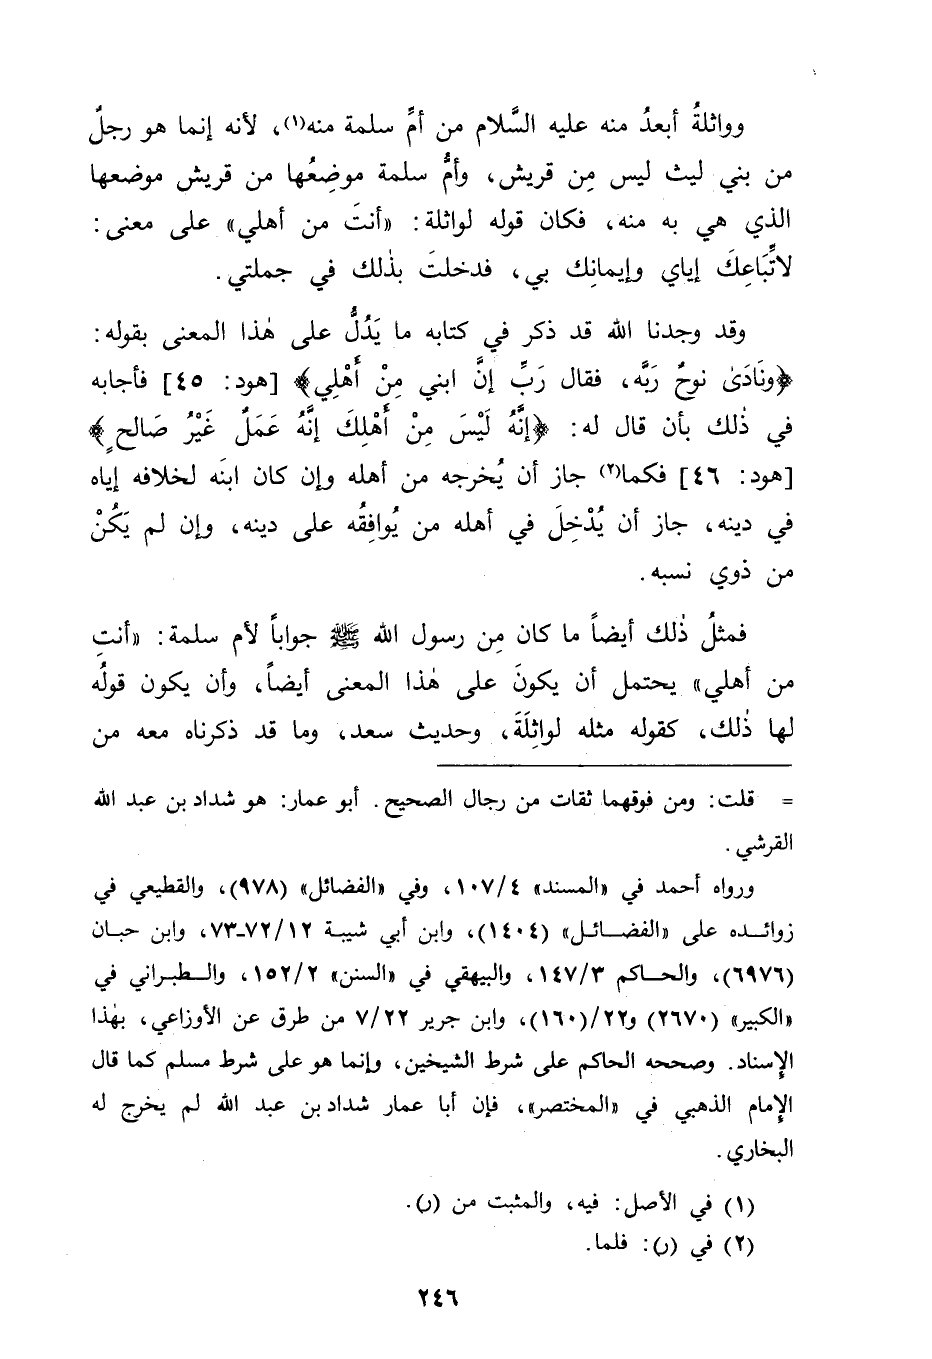 وواثلةُ أبعدُ منه عليه السَّلام من أمِّ سلمة منه(١)، لأنه إنما هو رجلٌ
من بني ليث ليس مِن قريش، وأمُّ سلمة موضِعُها من قريش موضعها
الذي هي به منه، فكان قوله لواثلة: «أنتَ من أهلي» على معنى:
لاتِّبَاعِكَ إياي وإيمانِك بي، فدخلتَ بذٰلك في جملتي.
وقد وجدنا الله قد ذكر في كتابه ما يَدُلُّ على هٰذا المعنى بقوله:
﴿ونَادَىٰ نوحٌ رَبَّه، فقال رَبِّ إنَّ ابني مِنْ أَهْلِي﴾ [هود: ٤٥] فأجابه
في ذٰلك بأن قال له: ﴿إنَّهُ لَيْسَ مِنْ أَهْلِكَ إنَّهُ عَمَلٌ غَيْرُ صَالحٍ﴾
[هود: ٤٦] فكما(٢) جاز أن يُخرجه من أهله وإن كان ابنَه لخلافه إياه
في دينه، جاز أن يُدْخِلَ في أهله من يُوافِقُه على دينه، وإن لم يَكُنْ
من ذوي نسبه.
فمثلُ ذٰلك أيضاً ما كان مِن رسول الله ﷺ جواباً لأم سلمة: «أنتِ
من أهلي» يحتمل أن يكونَ على هٰذا المعنى أيضاً، وأن يكون قولُه
لها ذٰلك، كقوله مثله لواثِلَةَ، وحديث سعد، وما قد ذكرناه معه من
= قلت: ومن فوقهما ثقات من رجال الصحيح. أبو عمار: هو شداد بن عبد الله
القرشي.
ورواه أحمد في «المسند» ١٠٧/٤، وفي «الفضائل» (٩٧٨)، والقطيعي في
زوائده على «الفضائل» (١٤٠٤)، وابن أبي شيبة ٧٢/١٢-٧٣، وابن حبان
(٦٩٧٦)، والحاكم ١٤٧/٣، والبيهقي في «السنن» ١٥٢/٢، والطبراني في
«الكبير» (٢٦٧٠) و٢٢/(١٦٠)، وابن جرير ٧/٢٢ من طرق عن الأوزاعي، بهٰذا
الإسناد. وصححه الحاكم على شرط الشيخين، وإنما هو على شرط مسلم كما قال
الإمام الذهبي في «المختصر»، فإن أبا عمار شداد بن عبد الله لم يخرج له
البخاري.
(١) في الأصل: فيه، والمثبت من (ر).
(٢) في (ر): فلما.
٢٤٦